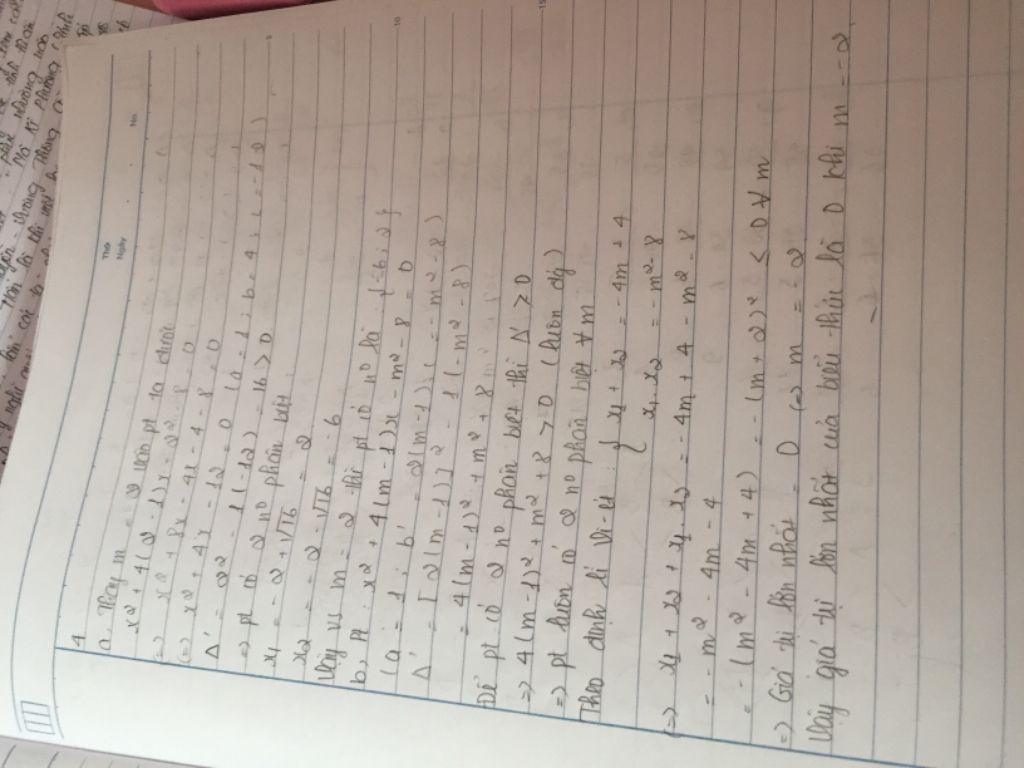 Thứ
Ngày
No.
4
a. Thay m = 2 vào pt ta được
x² + 4(2-1)x - 2² - 8 = 0
(=) x² + 8x - 4x - 4 - 8 = 0
(=) x² + 4x - 12 = 0 (a = 1 ; b = 4 ; c = -12)
Δ' = 2² - 1(-12) = 16 > 0
=> pt có 2 n⁰ phân biệt
x1 = -2 + √16 = 2
x2 = -2 - √16 = -6
Vậy vs m = 2 thì pt có n⁰ là {-6; 2}
b) Pt : x² + 4(m-1)x - m² - 8 = 0
(a = 1 ; b' = 2(m-1); c = -m² - 8)
Δ' = [2(m-1)]² - 1(-m² - 8)
= 4(m-1)² + m² + 8
Để pt có 2 n⁰ phân biệt thì Δ' > 0
=> 4(m-1)² + m² + 8 > 0 (luôn đg)
=> pt luôn có 2 n⁰ phân biệt ∀ m
Theo định lí Vi-et : { x1 + x2 = -4m + 4
x1.x2 = -m² - 8
(=) x1 + x2 + x1.x2 = -4m + 4 - m² - 8
= -m² - 4m - 4
= -(m² - 4m + 4) = -(m + 2)² ≤ 0 ∀ m
=> Giá trị lớn nhất = 0 (=) m = -2
Vậy giá trị lớn nhất của biểu thức là 0 khi m = -2